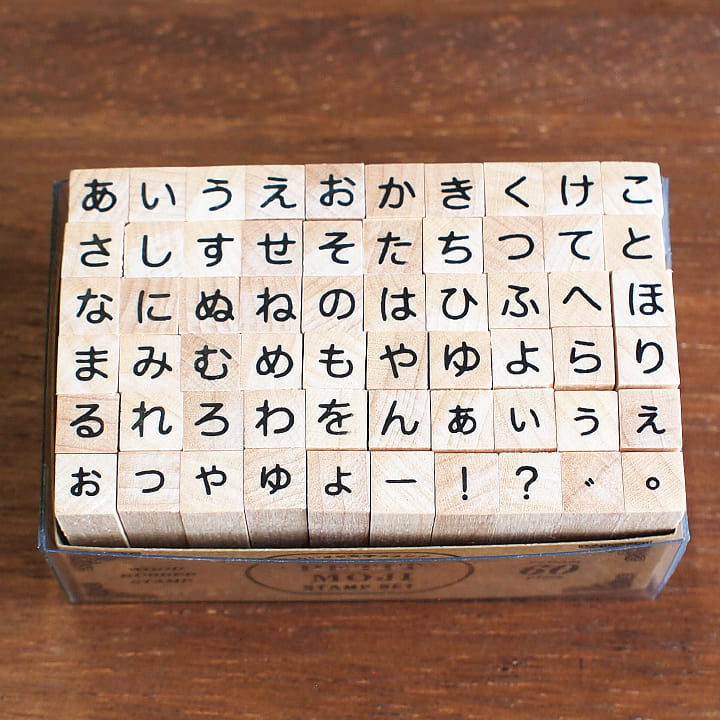 あいうえおかきくけこ
さしすせそたちつてと
なにぬねのはひふへほ
まみむめもやゆよらり
るれろわをんぁぃぅぇ
ぉっゃゅょー!?゛。
MOJI
STAMP SET
WOOD
RUBBER
STAMP
60